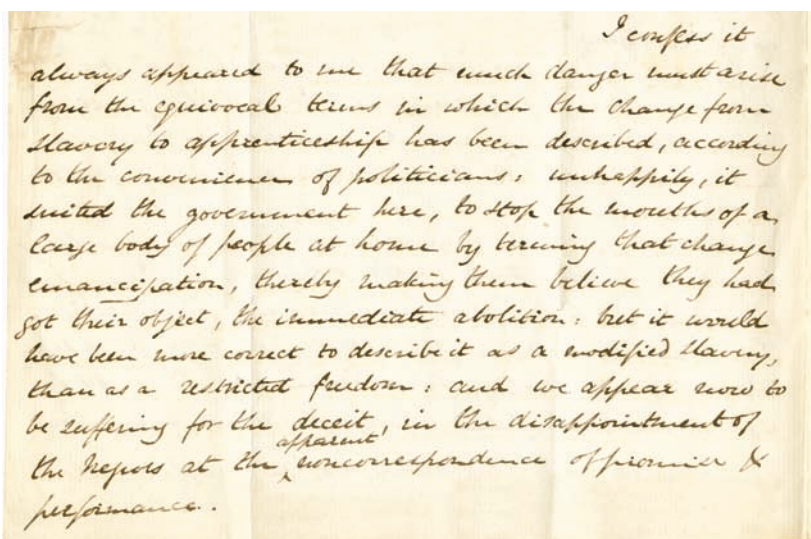 I confess it
always appeared to me that much danger must arise
from the equivocal terms in which the change from
slavery to apprenticeship has been described, according
to the convenience of politicians: unhappily, it
suited the government here, to stop the mouths of a
large body of people at home by terming that change
emancipation, thereby making them believe they had
got their object, the immediate abolition: but it would
have been more correct to describe it as a modified slavery,
than as a restricted freedom: and we appear now to
be suffering for the deceit, in the disappointment of
the Negros at the apparent noncorrespondence of promise &
performance.